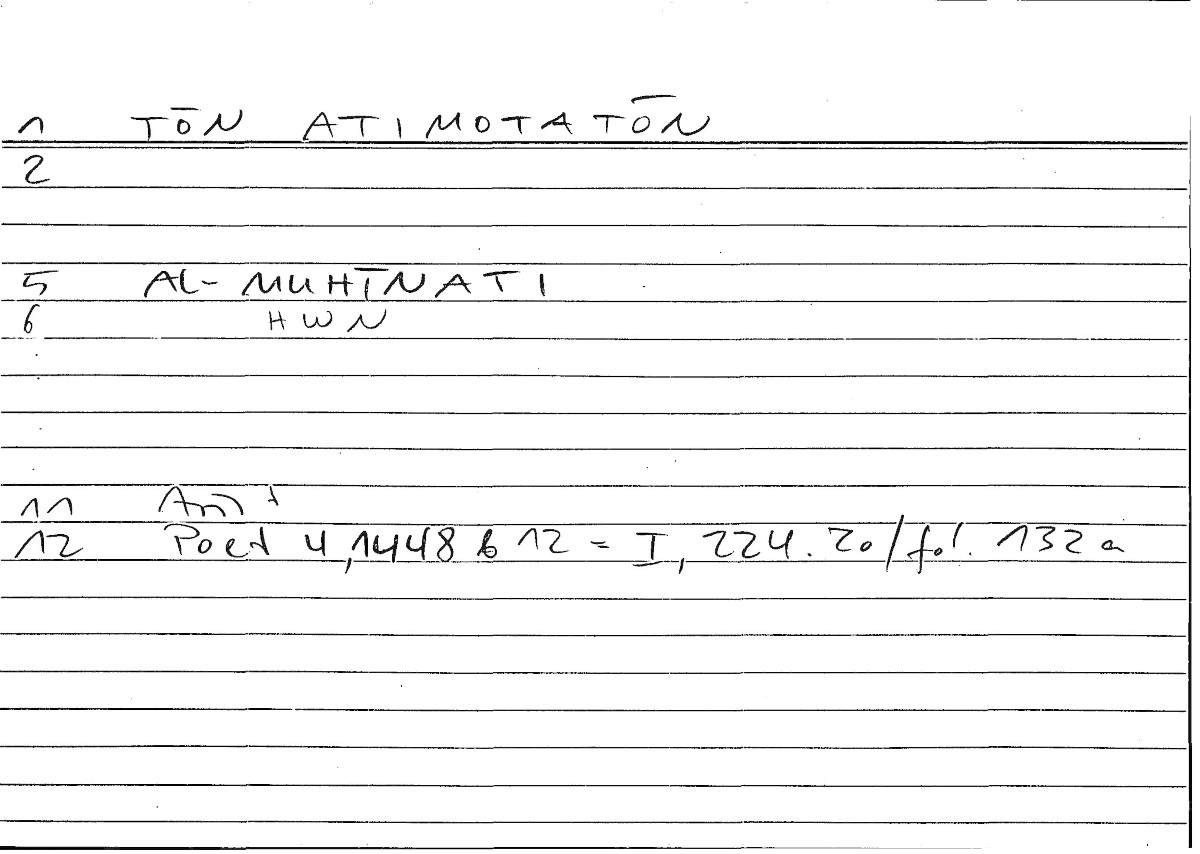 1 TŌN ATIMOTATŌN
2
5 AL-MUHĪNATI
6 HWN
.
.
.
.
11
12 Poet 4,1448 b 12 = I, 224.20/fol. 132a